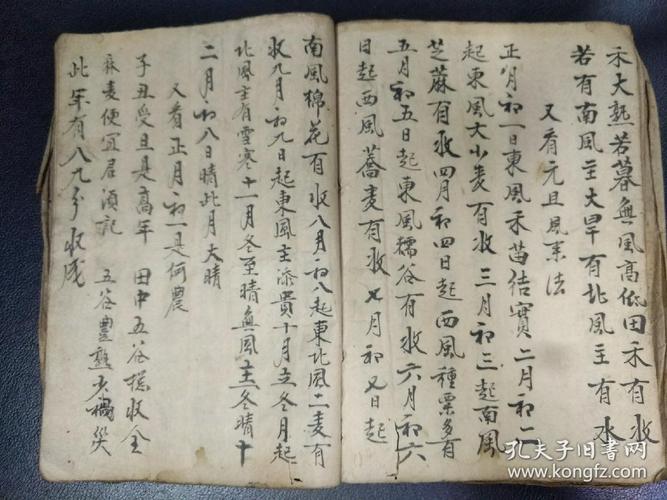 禾大熟若暮無風高低田禾有收
若有南風主大旱有北風主有水
又看元旦風柔法
正月初一日東風禾苗结實二月初二
起東風大小麦有收三月初三起南風
芝蔴有收四月初四日起西風種粟多有
五月初五日起東風糯谷有收六月初六
日起西風蕎麦有收七月初七日起
南風棉花有收八月初八起東北風二麦有
收九月初九日起東風主添貴十月立冬月起
北風主有雪寒十一月冬至晴無風主冬晴十
二月初八日晴此月大晴
又看正月初一是何農
子丑受旦是高年 田中五谷總收全
麻麦便宜君須記 五谷豊熟少禍災
此年有八九分收成
孔夫子旧书网
book.kongfz.com